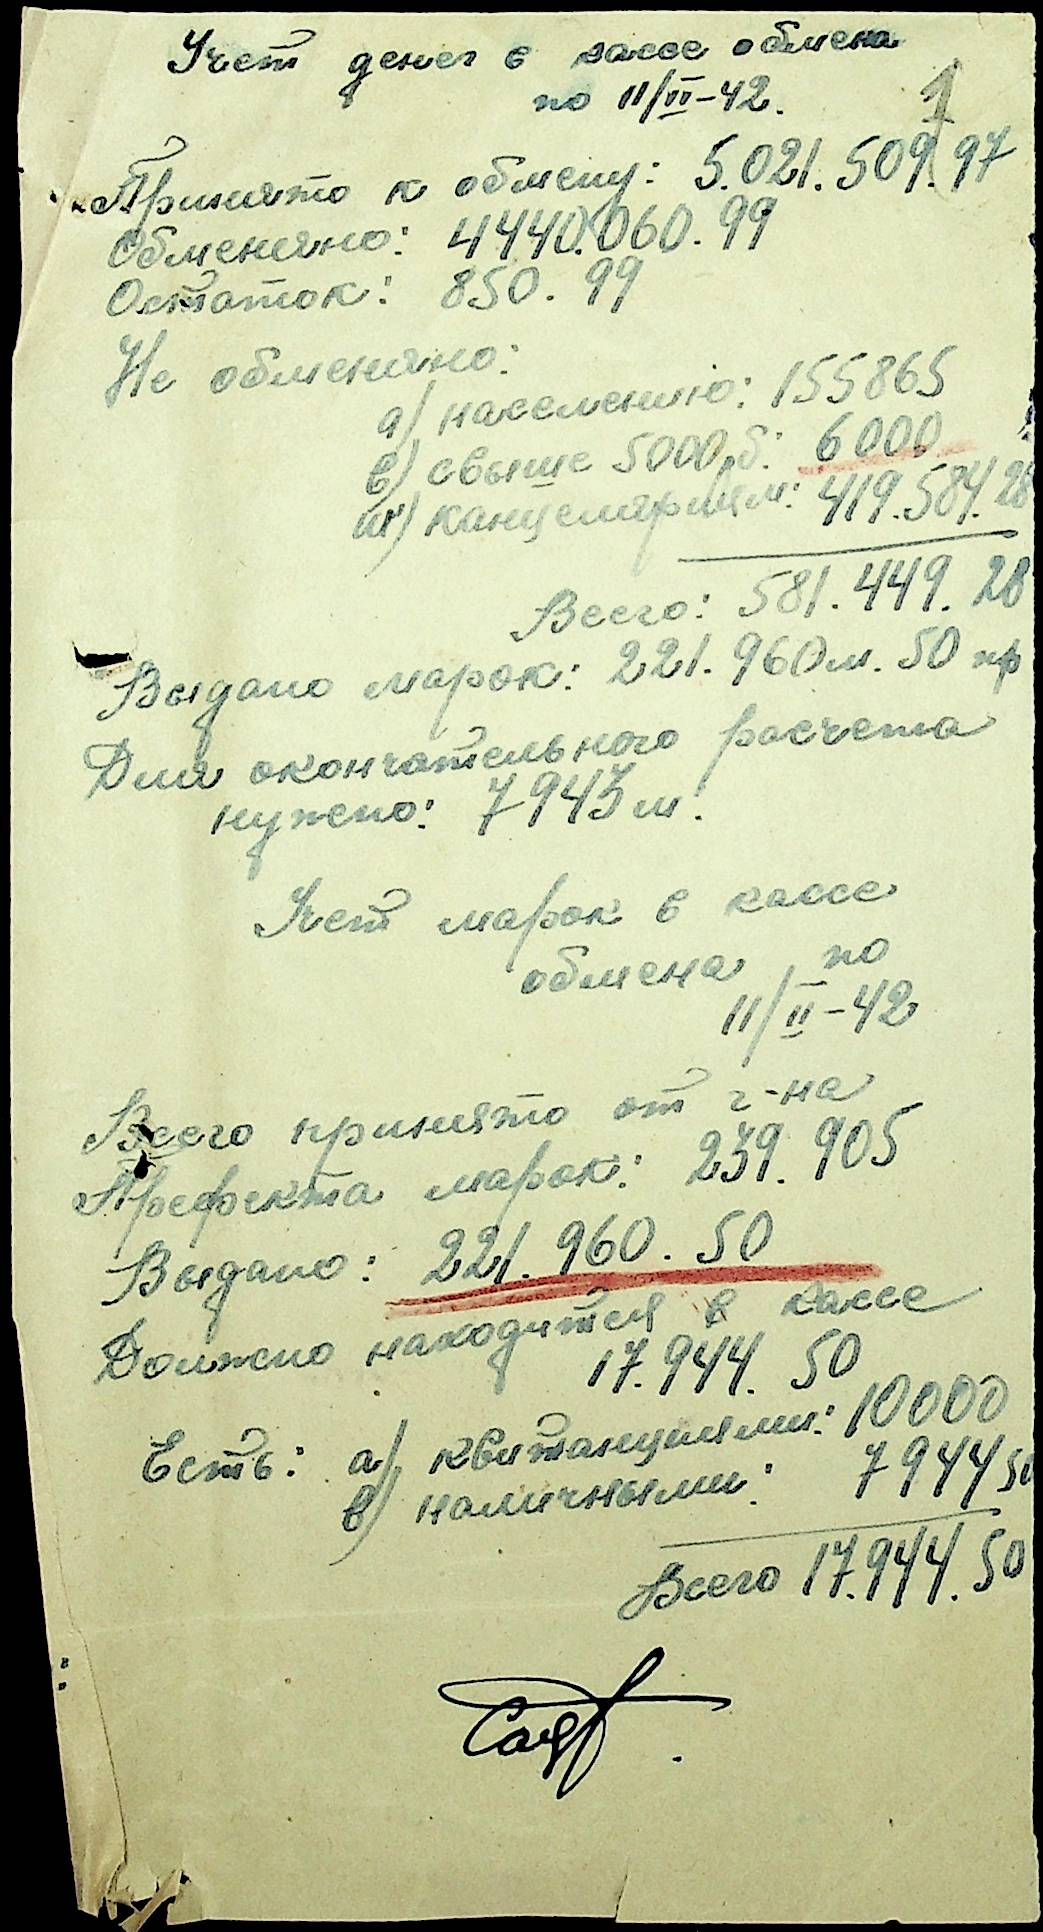 Учет денег в кассе обмена
по 11/II-42.
1
Принято к обмену: 5.021.509.97
Обменяно: 4440.060.99
Остаток: 850.99
Не обменяно:
а) населению: 155865
в) свыше 5000 б: 6000
г) канцеляриям: 419.584.28
Всего: 581.449.28
Выдано марок: 221.960 м. 50 пф
Для окончательного расчета
нужено: 7943 м.
Учет марок в кассе
обмена по
11/II-42
Всего принято от г-на
Префекта марок: 239.905
Выдано: 221.960.50
Должено находится в кассе
17.944.50
Есть: а) квитанциями: 10000
в) наличными: 7944 50
Всего 17.944.50